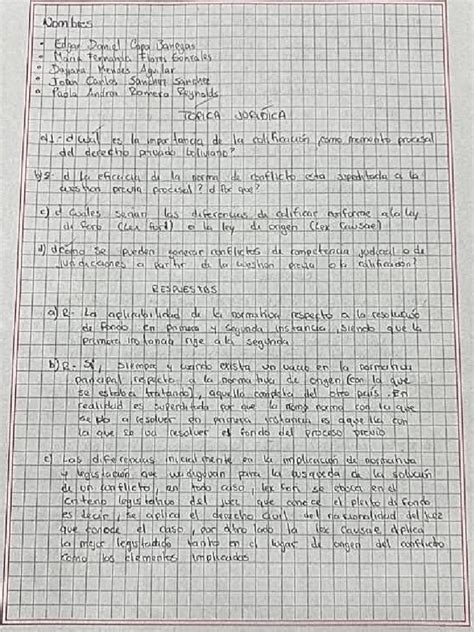 Nombres
• Edgar Daniel Copa Banegas
• Maria Fernanda Flores Gonzales
• Dayana Mendes Aguilar
• Joan Carlos Sanchez Sanchez
• Paola Andrea Romero Reynolds
TOPICA JURIDICA
a) 1- d Cuál es la importancia de la calificación como momento procesal
del derecho privado boliviano?
b) 2- d La eficacia de la norma de conflicto esta supeditada a la
cuestion previa procesal? d Por que?
c) d Cuales serian las diferencias de calificar conforme a la ley
de foro (Lex Fori) o la ley de origen (Lex Causae)
d) d Como se pueden generar conflictos de competencia judicial o de
jurisdicciones a partir de la cuestion previa o la calificación?
RESPUESTAS
a) R- La aplicabilidad de la normativa respecto a la resolución
de fondo en primera y segunda instancia, siendo que la
primera instancia rige a la segunda
b) R- Si, siempre y cuando exista un vacio en la normativa
principal respecto a la normativa de origen (con la que
se estaba tratando), aquello completa del otro país. En
realidad es supeditada por que la norma con la que
se va a resolver en primera instancia es aquella con
la que se va resolver el fondo del proceso previo
c) Las diferencias inicialmente en la aplicación de normativa
y legislación que para la busqueda de la solución
de un conflicto, en todo caso, lex fori se enfoca en el
criterio legislativo del juez que conoce el pleito de fondo
es decir, se aplica el derecho civil del nacionalidad del juez
que conoce el caso, por otro lado la lex causae aplica
la mejor legislación tanto en el lugar de origen del conflicto
como los elementos implicados